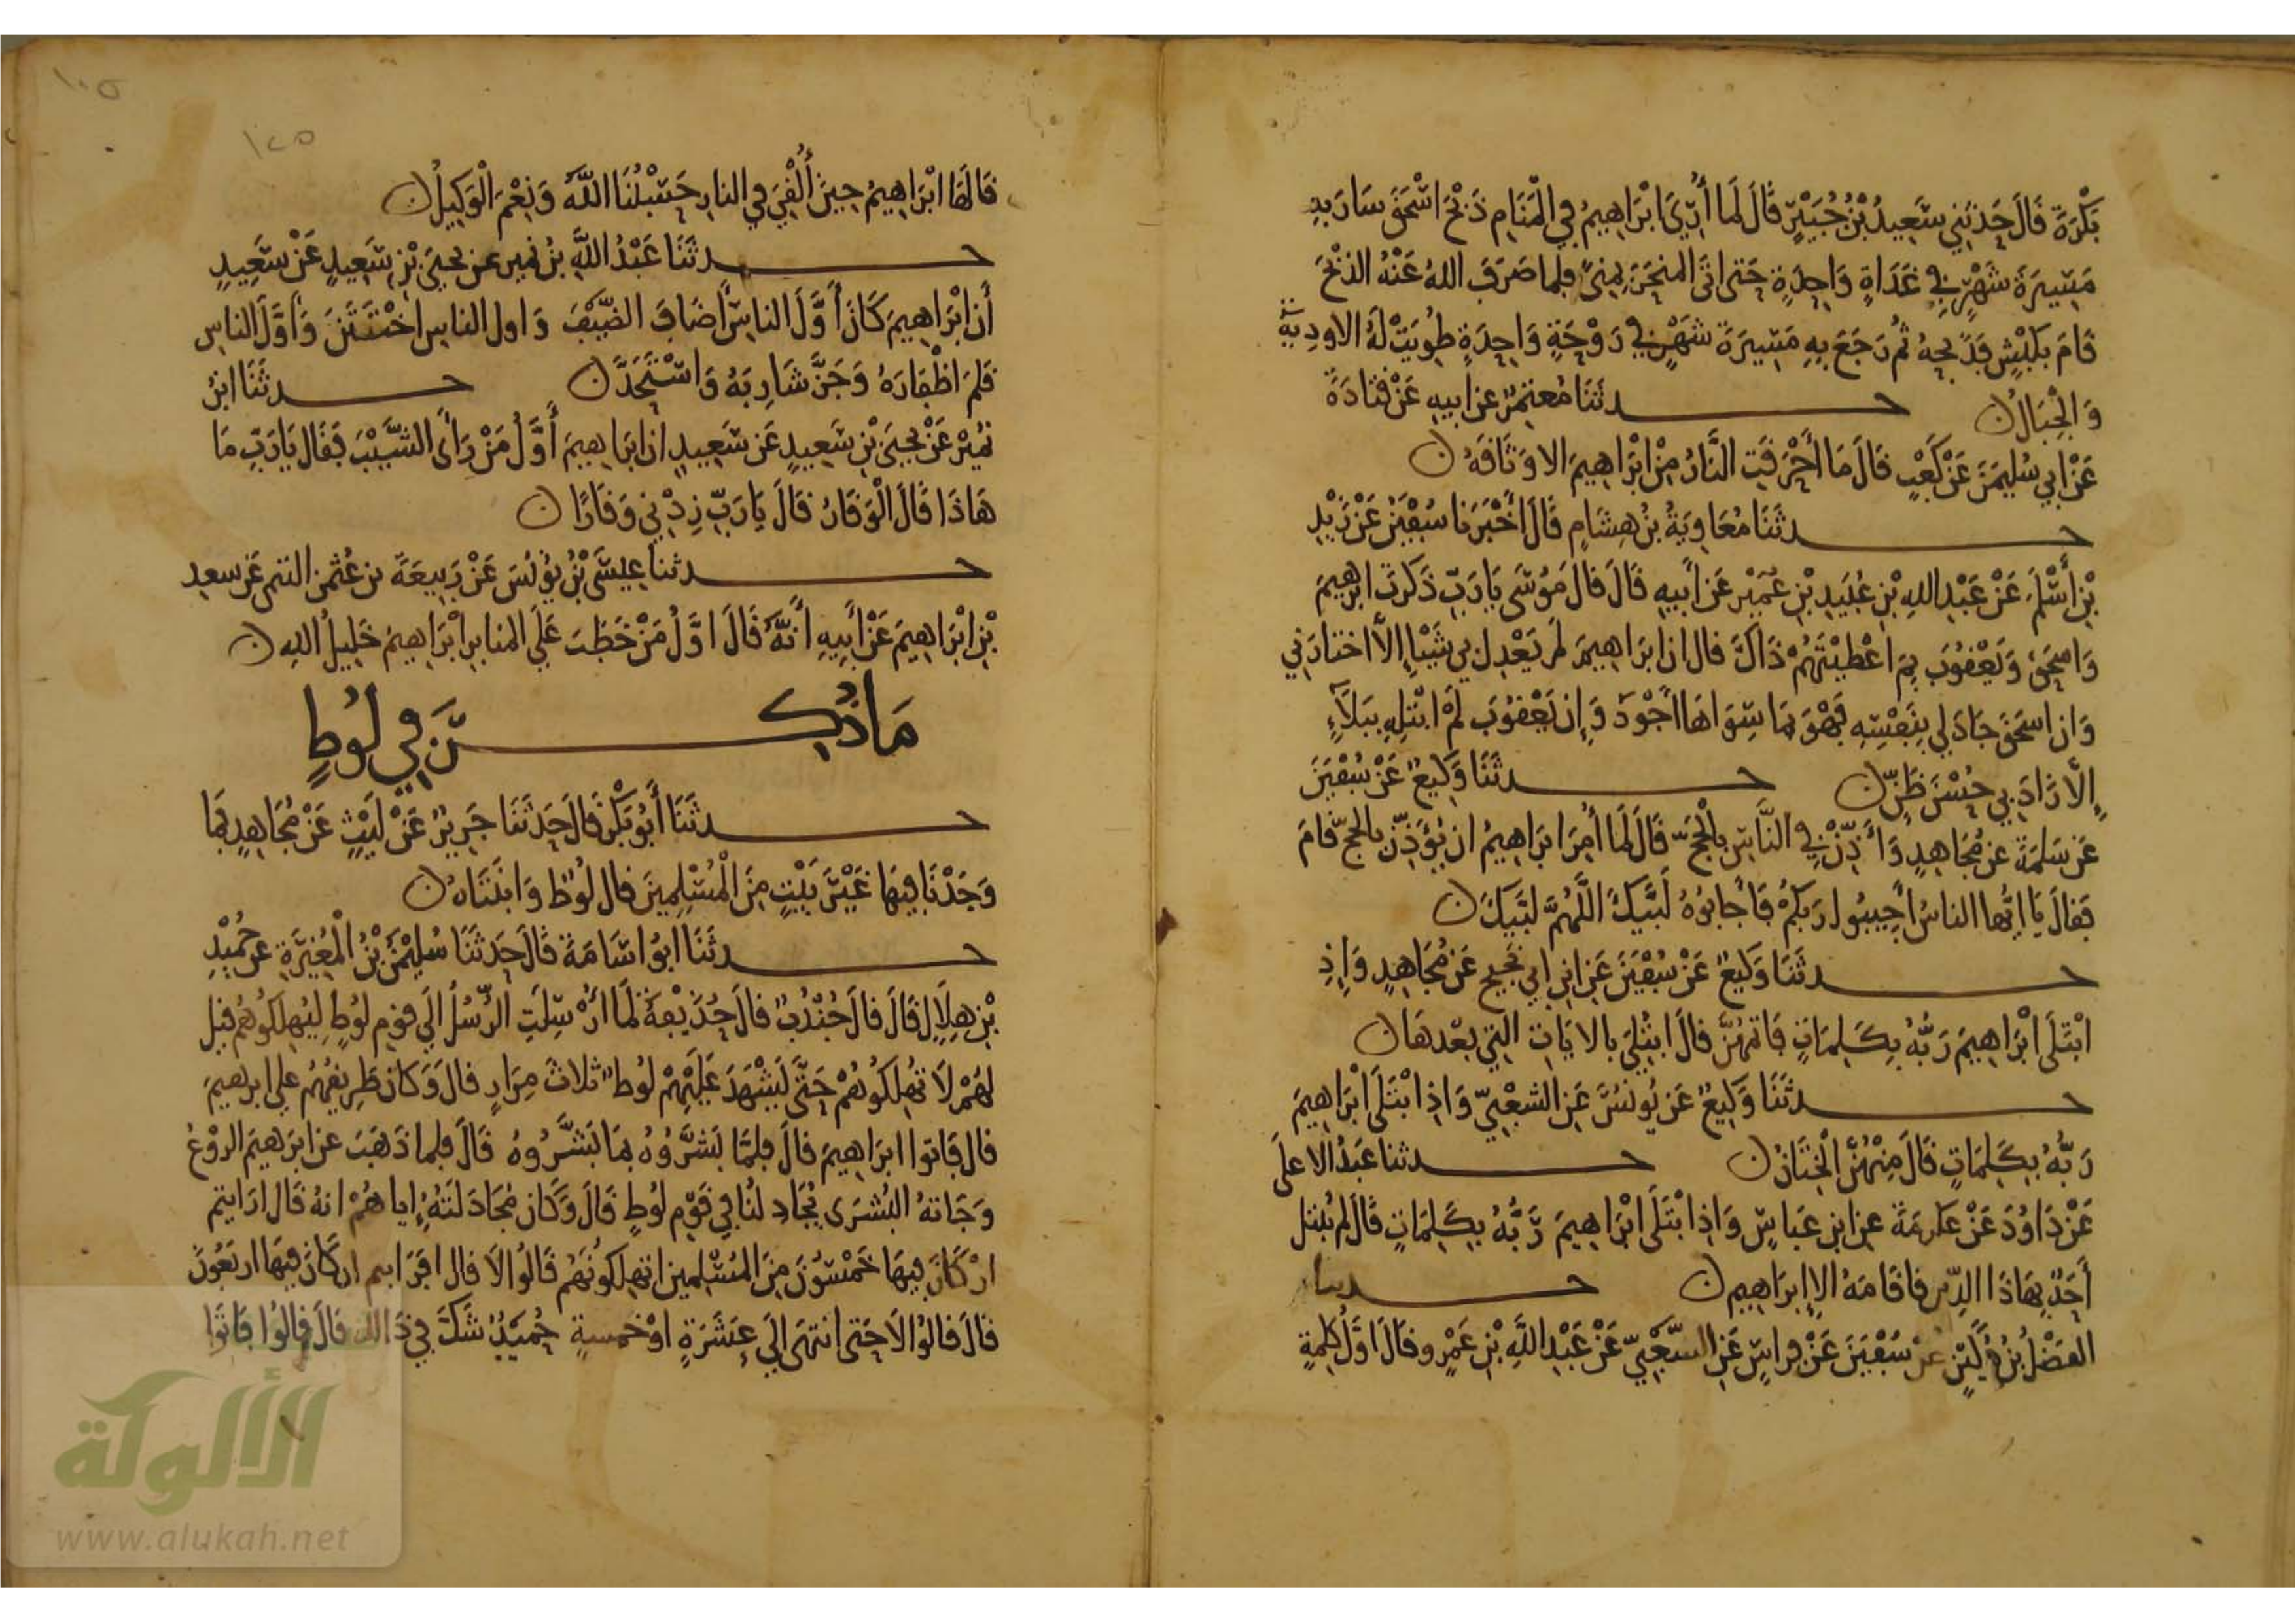 بَكْرَةَ قَالَ حَدثَنِي سَعِيدُ بْنُ جُبَيْرٍ قَالَ لَمَا أُرِيَ ابْرَاهِيمُ فِي الْمَنَامِ ذَبْحَ اسْحَقَ سَارَ بِهِ
مَسِيرَةَ شَهْرٍ فِي غَدَاةٍ وَاحِدَةٍ حَتى اتَى المنحَرَ بِمِنىً فلما صَرَفَ اللهُ عَنْهُ الذبْحَ
قَامَ بِكَبْشٍ فَذَبَحَهُ ثُم رَجَعَ بِهِ مَسِيرَةَ شَهْرٍ في رَوْحَةٍ وَاحِدَةٍ طُوِيَتْ لَهُ الاودِيَة
وَالْجِبَالُ ن حــدثَنَا مُعتَمِرٌ عن ابيهِ عَنْ قَتَادَةَ
عَنْ ابي سُلَيمَنَ عَنْ كَعْبٍ قَالَ مَا أَحْرَقَتِ النَّارُ مِنْ ابْرَاهِيمَ الا وَثَاقَهُ ن
حــدثَنَا مُعَاوِيَةُ بنُ هِشَامٍ قَالَ أَخْبَرَنا سُفْيَنُ عَنْ زَيْدِ
بْنِ أَسْلَمَ عَنْ عَبْدِ اللهِ بْنِ عُبَيدِ بْنِ عُمَيْر عَن أَبيهِ قَالَ قالَ مُوْسَى يَا رَبِّ ذَكَرتَ ابرهيمَ
وَاسحَقَ وَيَعْقُوبَ بِمَ اعْطَيْتَهُمْ ذَاكَ قال ان ابرَاهِيمَ لَم يَعْدِل بي شَيْئا إِلاَّ اختارَنِي
وَان اسحَقَ جَادَ لي بِنَفْسِهِ فَهْوَ بِمَا سِوَاهَا أَجْوَدُ وَإِن يَعْقُوبَ لَمْ ابْتَلِهِ بِبَلاَءٍ
إِلَّا زَادَ بي حُسْنَ ظَنٍّ ن حــدثَنَا وَكيعٌ عَنْ سُفْيَنَ
عَن سَلمَةَ عن مُجَاهِدٍ وَأَذِّنْ فِي النَّاسِ بالْحَجِّ قَالَ لَما أُمِرَ ابرَاهِيمُ ان يُؤَذِّنَ بالحَجِّ قَامَ
فَقالَ يَا ايُّها الناسُ أَجِيبُوا رَبكُمْ فَأَجَابُوْهُ لَبَّيكَ اللَّهُمَّ لبَّيكَ ن
حــدثَنَا وَكيعٌ عَنْ سُفْيَنَ عَن ابنِ ابي نَجِيحٍ عَن مُجَاهِدٍ وَإِذِ
ابْتَلَى ابْرَاهِيمَ رَبُّهُ بِكَلِمَاتٍ فَاتمهُنَّ قالَ ابتُلِيَ بالايَاتِ التِي بَعْدهَا ن
حــدثَنَا وَكيعٌ عَن يُونُسَ عَنِ الشعْبِيِّ وَاذِ ابْتَلَى ابْرَاهِيمَ
رَبُّهُ بِكَلِمَاتٍ قَالَ مِنْهُنَّ الْخِتَانُ ن حــدثنا عَبدُ الاعلَى
عَنْ دَاوُدَ عَنْ عكرمَةَ عن ابنِ عَبَاسٍ وَاذِ ابْتَلَى ابْرَاهِيمَ رَبُّهُ بِكَلِمَاتٍ قَالَ لم يُبتل
أَحَدٌ بِهَاذَا الدِّينِ فاقَامَهُ الا إِبرَاهِيم ن حــدثنا
الفضْلُ بنُ دُكَيْنٍ عَنْ سُفْيَنَ عَنْ فراسٍ عَنِ الشَّعْبِيِّ عَنْ عَبْدِ اللَّهِ بْنِ عَمْرٍو قَالَ اوَّلُ كلِمَةٍ
١٠٥
١٢٥
قَالَهَا ابْرَاهِيمُ حِينَ أُلْقِيَ فِي النارِ حَسْبُنَا اللَّهُ وَنِعْمَ الْوَكِيلُ ن
حــدثَنَا عَبْدُ اللَّهِ بنُ نمير عن يحيَى بْنِ سَعِيدٍ عَنْ سَعِيدٍ
أَن ابْرَاهِيمَ كَانَ أَوَّلَ الناسِ أَضَافَ الضَّيْفَ وَاول الناسِ اخْتَتَنَ وَأَوَّلَ الناسِ
قَلمَ اظْفَارَهُ وَجَزَّ شَارِبَهُ وَاسْتَحَدَّ ن حــدثَنَا ابنُ
نُمَيْرٍ عَنْ يحيَى بْنِ سَعِيدٍ عَن سَعِيدٍ ان ابرَاهِيمَ أَوَّلُ مَنْ رَأَى الشَّيْبَ فَقَال يَا رَبِّ مَا
هَاذَا قَالَ الْوَقَارُ قَالَ يَا رَبِّ زِدْنِي وَقَارًا ن
حــدثنا عِيسَى بْنُ يُونُسَ عَنْ رَبِيعَةَ بن عُثمن التيمي عَن سعدِ
بْنِ ابْرَاهِيمَ عَنْ أَبِيهِ أَنَّهُ قَالَ اوَّلُ مَنْ خَطَبَ عَلَى المنابرِ ابْرَاهِيمُ خَلِيلُ اللهِ ن
مَا ذُكِــرَ فِي لُوطٍ
حــدثَنَا أَبُو بَكْر قَالَ حَدثَنَا جَرِيرٌ عَنْ لَيْثٍ عَنْ مُجَاهِدٍ فَمَا
وَجَدْنَا فِيهَا غَيْرَ بَيْتٍ مِنَ الْمُسْلِمِينَ قال لُوطٌ وَابنَتَاهُ ن
حــدثَنَا ابوُ اسَامَةَ قَالَ حَدثَنَا سُلَيْمَنُ بْنُ الْمُغِيرَةِ عَن حُمَيْدِ
بْنِ هِلَالٍ قَالَ قالَ جُنْدُبٌ قالَ حُذَيْفَةُ لَمَا أُرْسِلَتِ الرُّسُلُ الَى قومِ لوُطٍ لِيُهلِكُوهُم قيل
لهُمْ لاَ تُهْلِكُوهُمْ حَتَّى يَشْهَدَ عَلَيْهِمْ لوُطٌ ثلاثَ مِرَارٍ قالَ وَكانَ طَرِيقُهُمْ على ابرهيمَ
قال فَاتوا ابرَاهِيمَ قالَ فلمَّا بَشَّرُوْهُ بمَا بَشَّرُوهُ قَالَ فلما ذَهَبَ عن ابرَهيمَ الروْعُ
وَجَاتهُ البُشرَى يُجَادِلنَا في قَوْمِ لوُطٍ قَالَ وَكَانَ مُجَادَلَتهُ اياهُمْ انهُ قَال ارَايتم
ان كَانَ فِيهَا خَمْسُونَ مِنَ المُسْلِمينَ اتهلِكونَهُم قَالوُا لاَ قالَ افَرَايتم ان كَانَ فيهَا اربَعُونَ
قالَ قالُوا لاَ حَتى انتهَى الَى عَشَرَةٍ اوْ خمسةٍ حُمَيْدٌ شَكَّ في ذَالكَ قالَ قالوُا فَاتَوْا
الألوكة
www.alukah.net